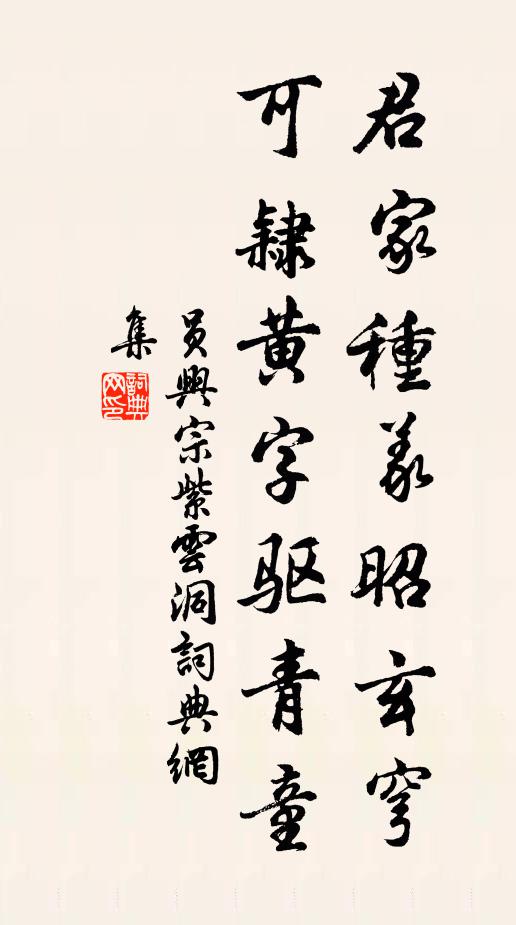 君家種義昭玄穹
可隸黃字驱青童
員興宗紫雲洞詞典網
集
詞典
网印